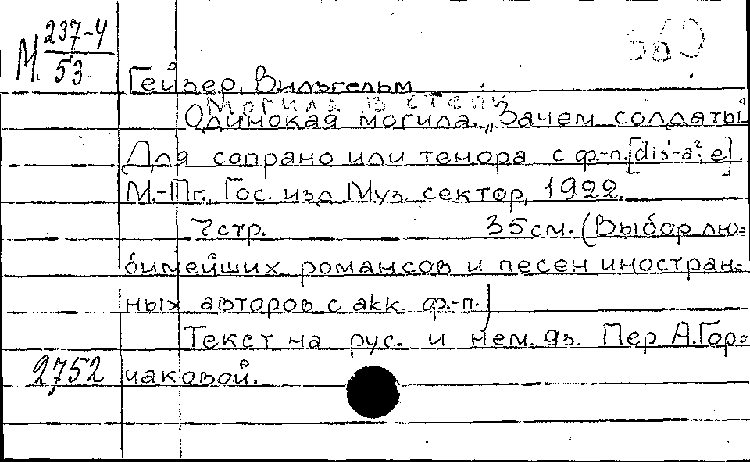 М 237-4
53
Гейзер, Вильгельм
Могила в степи
Одинокая могила. „Зачем солдаты
Для сопрано или тенора с ф-п. [dis¹-a²; e]
М.-Пг., Гос. изд. Муз. сектор, 1922.
7 стр. 35 см. (Выбор лю=
бимейших романсов и песен иностран=
ных авторов с акк. ф.-п.)
Текст на рус. и нем. яз. Пер. А. Гор=
чаковой.
2752